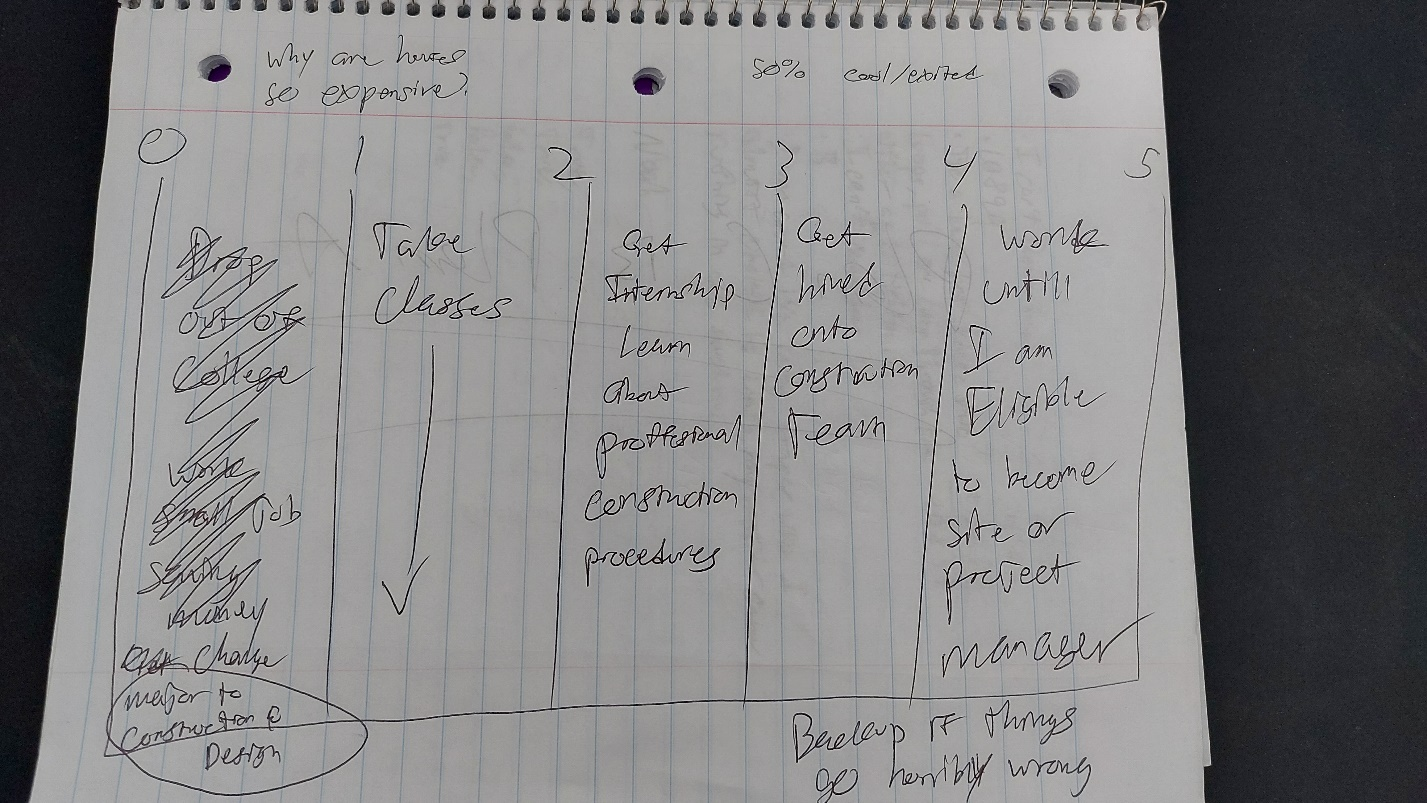 why are houses
so expensive?
50% cool/exited
0 1 2 3 4 5
Drop
out of
College
Work
small Job
money
change
major to
Construction &
Design
Take
Classes
Get
Internship
Learn
About
proffesional
construction
procedures
Get
hired
onto
Construction
Team
Work
untill
I am
Eligible
to become
site or
project
manager
Backup if things
go horribly wrong